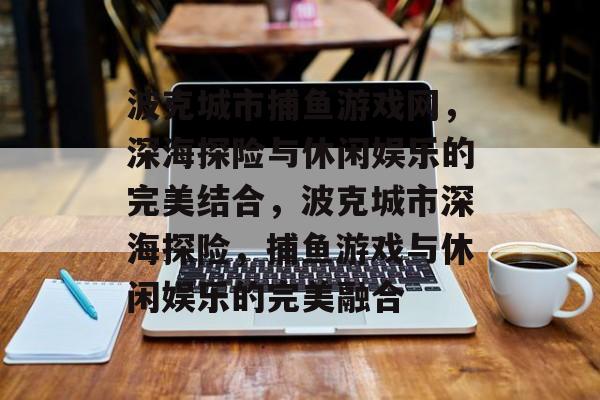 波克城市捕鱼游戏网，
深海探险与休闲娱乐的
完美结合，波克城市深
海探险，捕鱼游戏与休
闲娱乐的完美融合